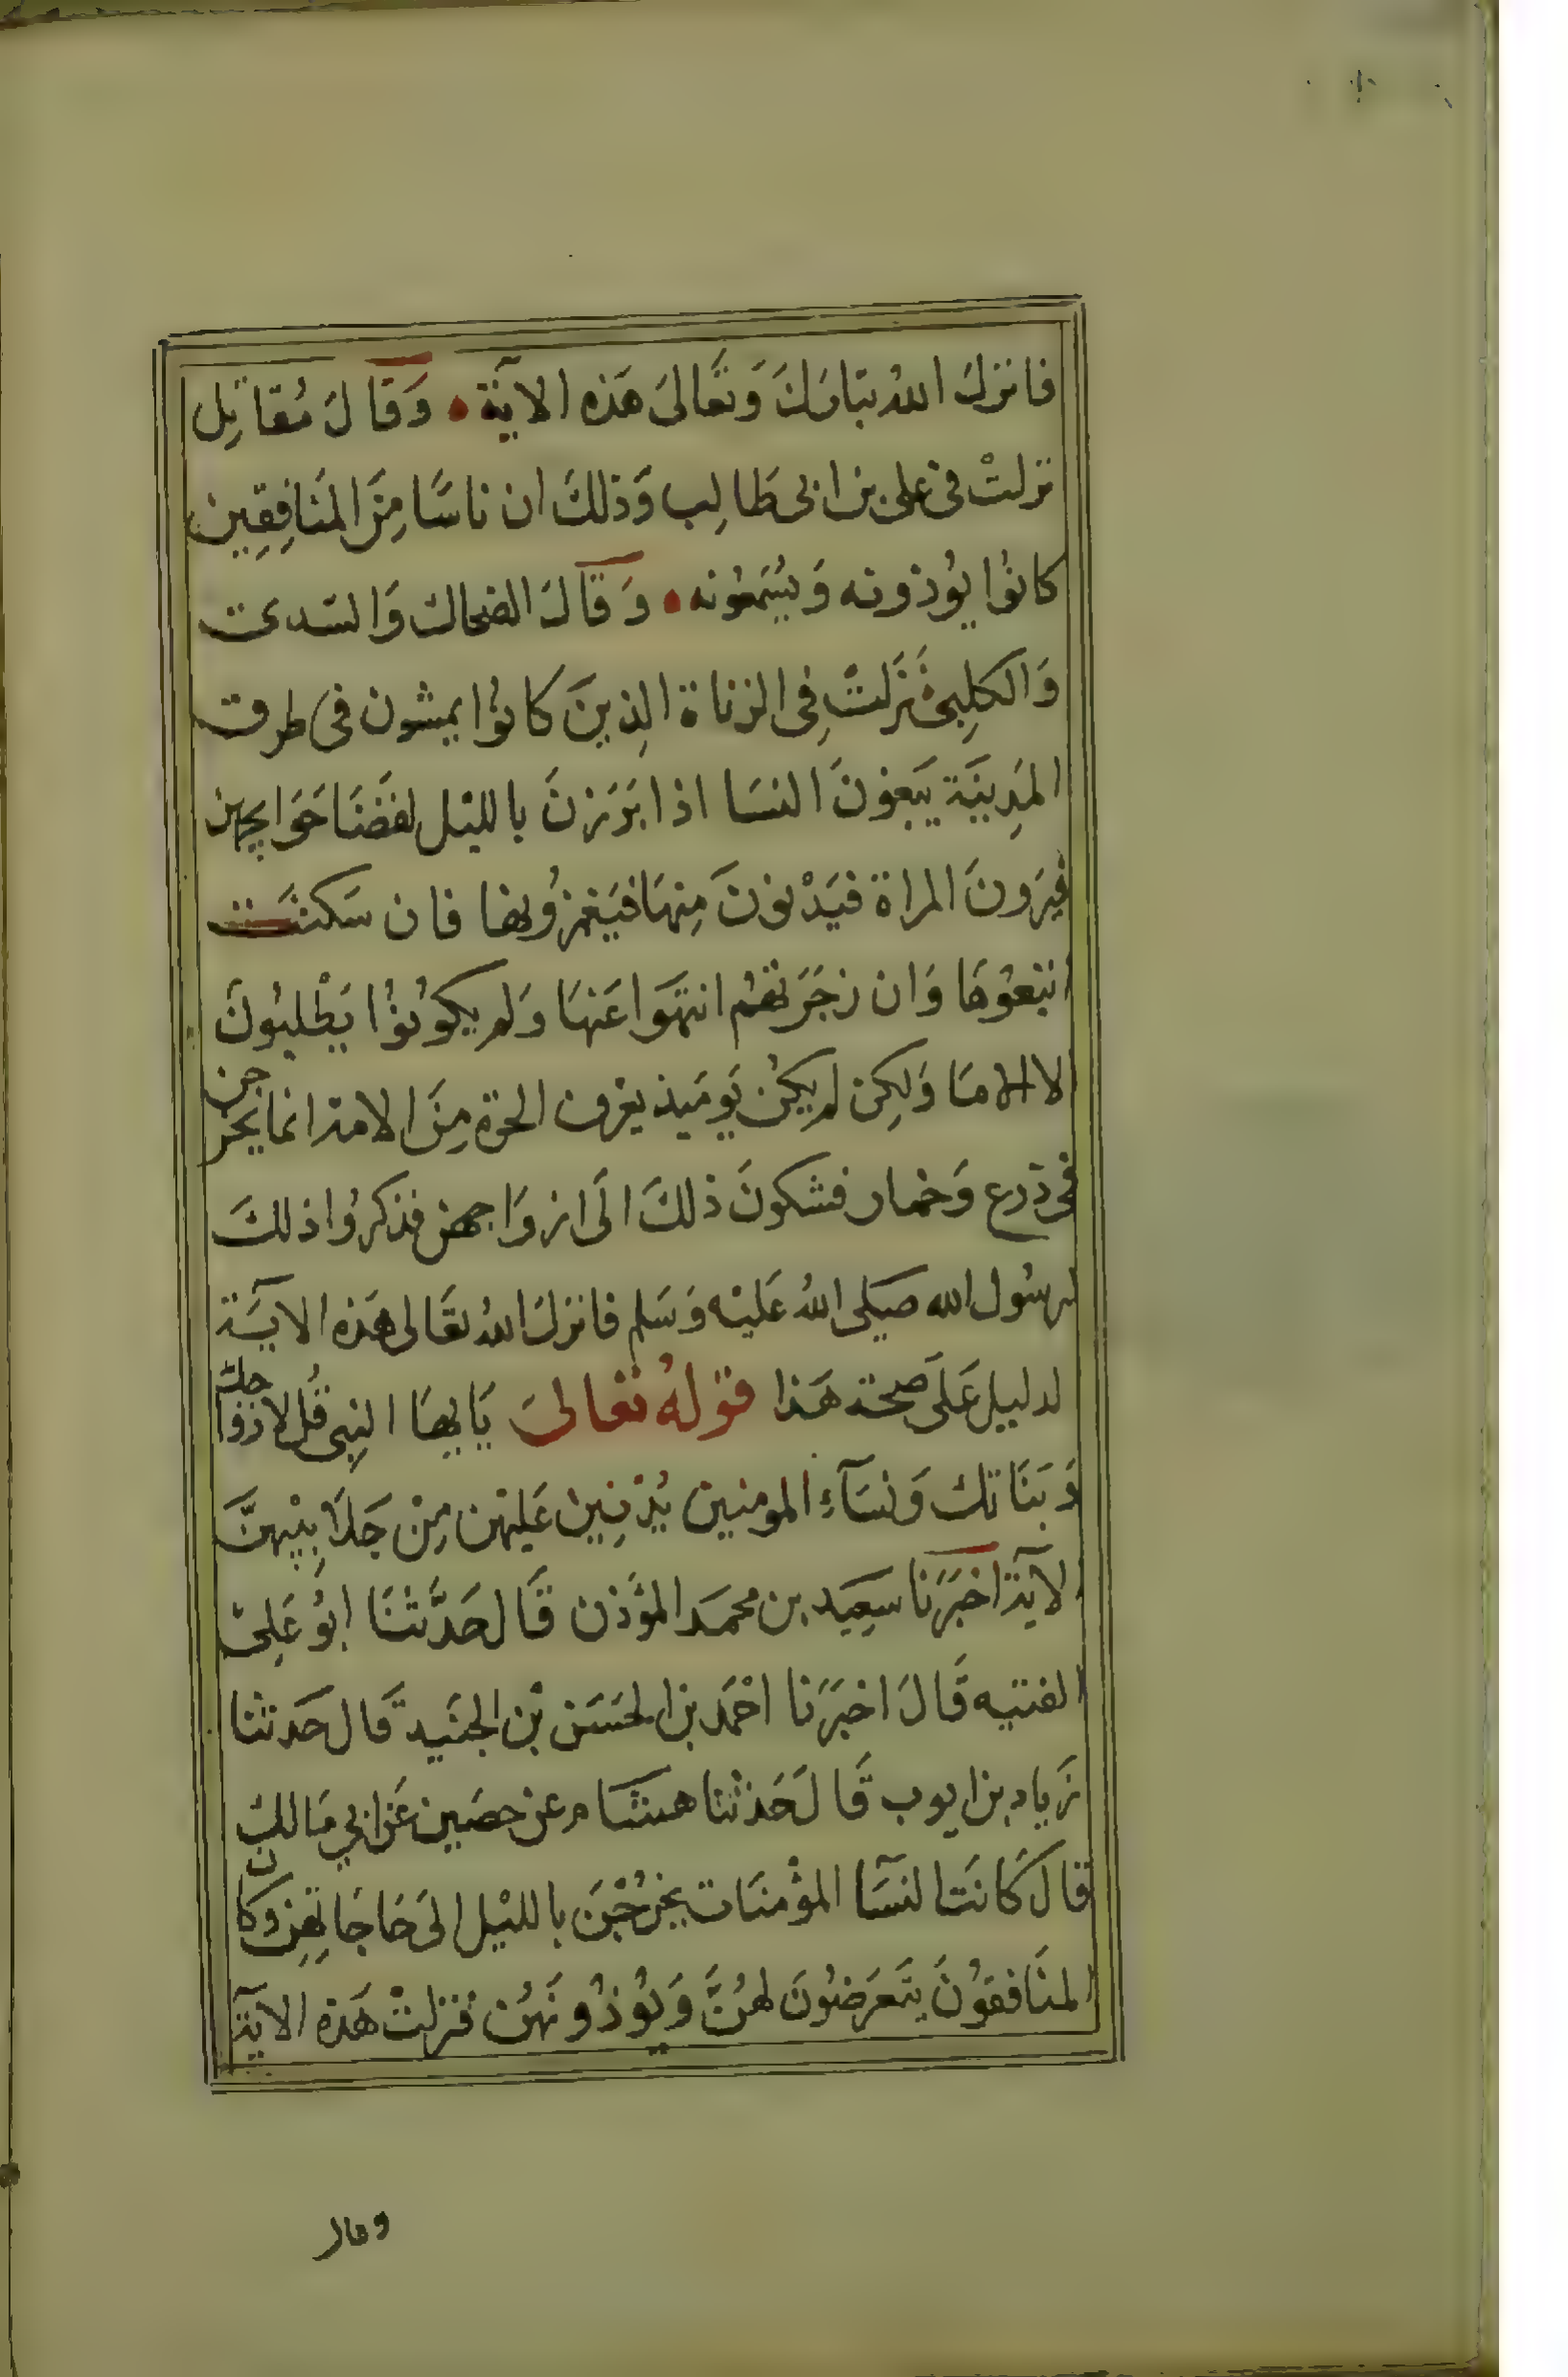 فانزلَ اللهُ تبَاركَ وَتعَالىَ هَذه الايَة وَقَالَ مُقاتِل
نزلتْ فى على بن ابى طَالِب وَذلكَ ان ناسًا مِنَ المنَافِقِين
كانوُا يوُذونه وَيُسَمعُونه وَقَالَ الضحاك وَالسّدى
وَالكلِبىُّ نَزَلتْ فِى الزناة الذِينَ كانوُا يمشون فى طرق
المَدِينَة يَبَغونَ النسَا اذا بَرَزنَ بالليْل لقضَا حَوَايجهن
فيَرونَ المراة فيَدْنونَ مِنهَا فيَغمزُونها فان سَكتَت
اتبعُوهَا وَان زجَرَتهُم انتهَوا عَنهَا وَلم يكوُنوُا يَطْلبُونَ
الا الامَا وَلكِن لم يكُن يَومَيذ يعرف الحرة مِنَ الامة انما يخرجن
فى دَرع وَخمار فشكونَ ذلكَ الَى ازوَاجهن فذكرُوا ذلكَ
لرسُول الله صَلى اللهُ عَليْه وَسَلم فانزلَ اللهُ تعَالى هَذه الايَة
لدليل عَلَى صحة هَذا قولهُ تعالىَ يَايهَا النبِى قُل لازواجك
وَبَنَاتك وَنسَآءِ المومنين يُدْنِينَ عَليْهن مِنْ جَلَابِيْبهنَّ
لاية اخبَرَنا سَعِيَد بن محمَد المؤَذن قَالَ حَدَّثنَا ابوُ عَلِىْ
الفقيه قَالَ اخبَرَنا احْمَد بن الحسَن بْن الجنَيد قَال حَدثنا
زيَاد بن ايوب قَالَ حَدثنا هشَام عن حصَين عَن ابي مَالك
قالَ كَانَت النسَآ المؤْمنَات يخرُجْنَ بالليْل الىَ حَاجَاتِهن وكان
المنَافقوُنَ يتَعَرَضوُنَ لهُنَّ وَيوُذُونَهُن فنزلتْ هَذه الاية
وقال